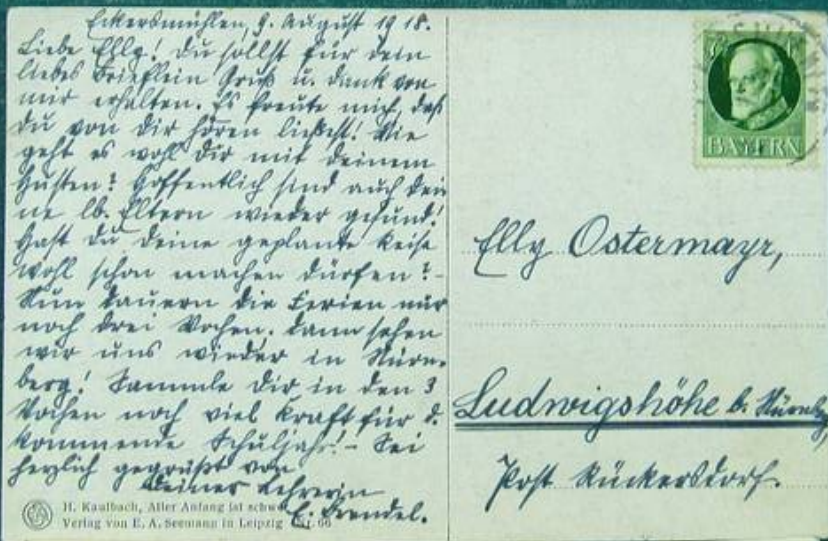 Eckersmühlen, 9. August 1918.
Liebe Elly! Du sollst für dein
liebes Brieflein Gruß u. Dank von
mir erhalten. Es freute mich, daß
Du von dir hören ließest! Wie
geht es wohl dir mit deinem
Husten? Hoffentlich sind auch dei
ne lb. Eltern wieder gesund!
Hast du deine geplante Reise
wohl schon machen dürfen? -
Nun dauern die Ferien nur
noch drei Wochen. Dann sehen
wir uns wieder in Nürn-
berg! Sammle dir in den 3
Wochen noch viel Kraft für d.
kommende Schuljahr! - Sei
herzlich gegrüßt von
deiner Lehrerin
H. Kaulbach, Aller Anfang ist schwe
Verlag von E. A. Seemann in Leipzig Nr. 66
BAYERN
Elly Ostermayr,
Ludwigshöhe b. Nürnbg,
Post Rückersdorf.